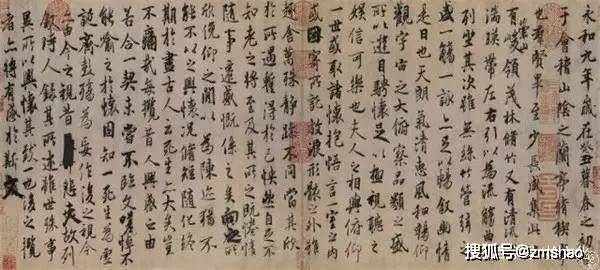 永和九年歲在癸丑暮春之初會
于會稽山陰之蘭亭脩稧事
也羣賢畢至少長咸集此地
有崇山峻領茂林脩竹又有清流激
湍暎帶左右引以為流觴曲水
列坐其次雖無絲竹管弦之
盛一觴一詠亦足以暢敘幽情
是日也天朗氣清惠風和暢仰
觀宇宙之大俯察品類之盛
所以遊目騁懷足以極視聽之
娛信可樂也夫人之相與俯仰
一世或取諸懷抱悟言一室之內
或因寄所託放浪形骸之外雖
趣舍萬殊靜躁不同當其欣
於所遇蹔得於己怏然自足不
知老之將至及其所之既惓情
隨事遷感慨係之矣向之所
欣俛仰之閒以為陳迹猶不
能不以之興懷況脩短隨化終
期於盡古人云死生亦大矣豈
不痛哉每攬昔人興感之由
若合一契未嘗不臨文嗟悼不
能喻之於懷固知一死生為虛
誕齊彭殤為妄作後之視今
亦由今之視昔悲夫故列
敘時人錄其所述雖世殊事
異所以興懷其致一也後之攬
者亦將有感於斯文
搜狐号@zmshao